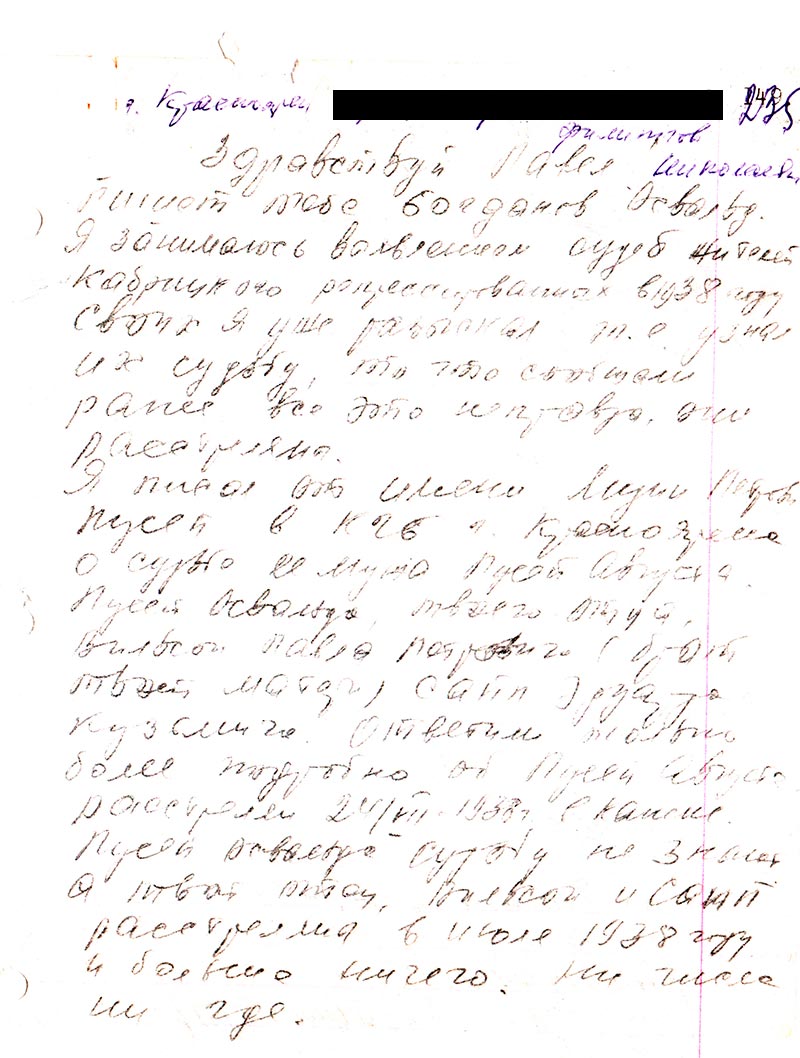 г. Красноярск
235
Филиппов
Здравствуй Павел Николаевич
Пишет тебе Богданов Освальд.
Я занимаюсь выявлением судеб жителей
Кабрицкого репрессированных в 1938 году
Своих я уже разыскал т.е. узнал
их судьбу, то что сообщали
ранее все это неправда. они
расстреляны.
Я писал от имени Лидии Петров
Пусеп в КГБ г. Красноярска
о судьбе ее мужа Пусеп Августа
Пусеп Освальда, твоего отца,
Вильсон Павла Петровича (брат
твоей матери) Санп Эдуарда
Кузьмича. Ответили только
более подробно об Пусеп Августе
расстрелян 24/III-1938г в Канске.
Пусеп Освальда судьбу не знают
а твой отец, Вильсон и Санп
расстреляны в июле 1938 году
и больше ничего. ни числа
ни где.